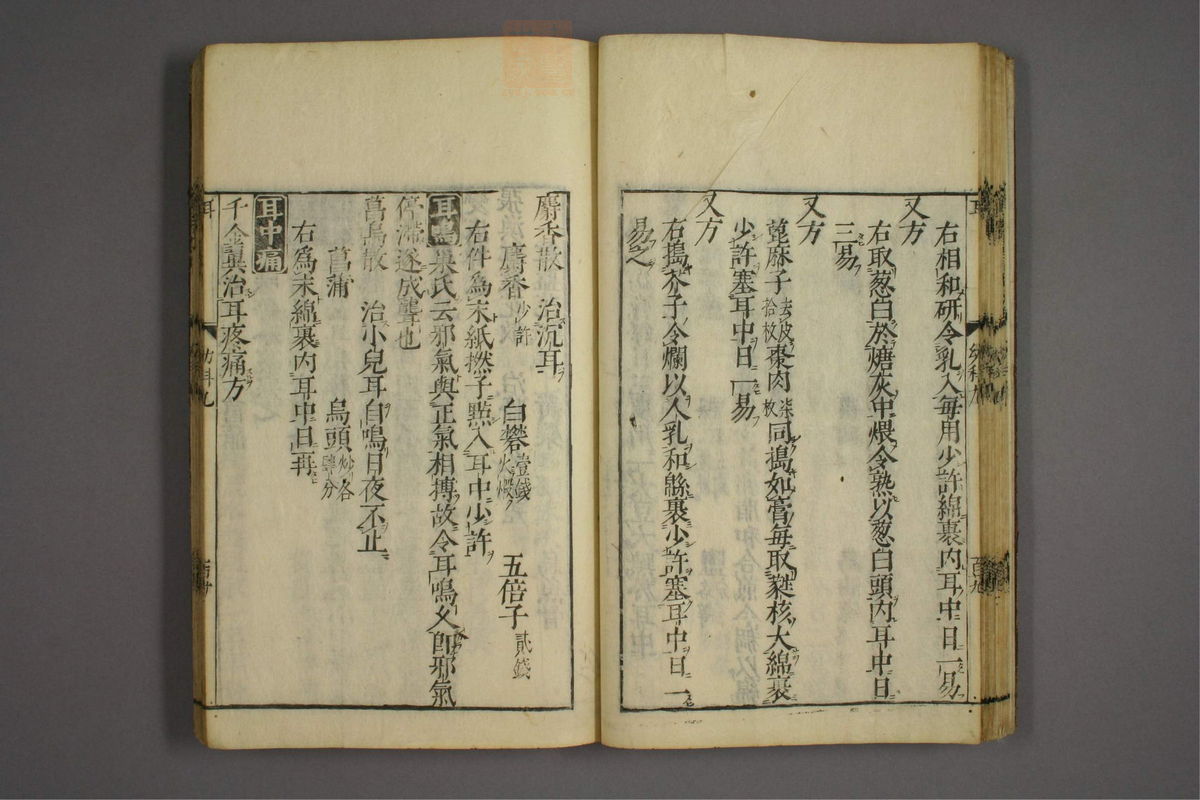 右相和研令乳入每用少許綿裹內耳中日一易
又方
右取葱白於煻灰中煨令熟以葱白頭內耳中日
三易
又方
萆麻子去皮拾枚棗肉柒枚同搗如膏每取棗核大綿裹
少許塞耳中日一易
又方
右搗芥子令爛以人乳和綿裹少許塞耳中日一
易之
幼科九
百九
麝香散 治沉耳
麝香少許 白礬壹錢火煅 五倍子貳錢
右件為末紙撚子㸃入耳中少許
耳鳴巢氏云邪氣與正氣相搏故令耳鳴又即邪氣
停滯遂成聾也
菖烏散 治小兒耳自鳴日夜不止
菖蒲 烏頭炒各肆分
右為末綿裹內耳中日再
耳中痛
千金翼治耳疼痛方
耳
幼科九